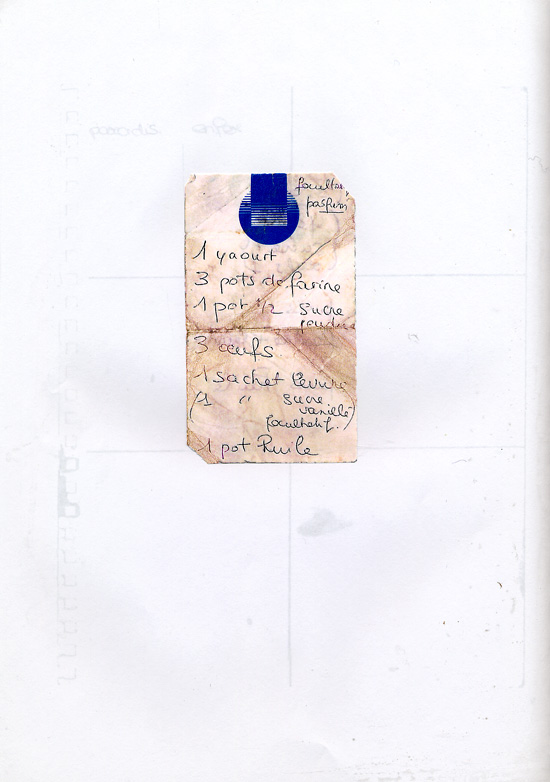 parfum
1 yaourt
3 pots de farine
1 pot 1/2 sucre
poudre
3 œufs.
1 sachet levure
(1 " sucre
vanillé)
facultatif.
1 pot Huile